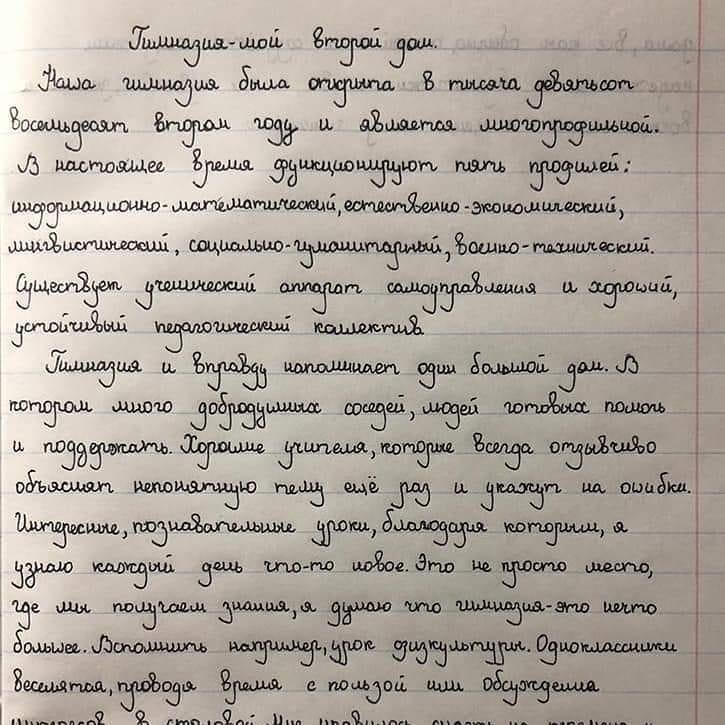 Гимназия-мой второй дом.
Наша гимназия была открыта в тысяча девятьсот
восемьдесят втором году и является многопрофильной.
В настоящее время функционируют пять профилей:
информационно-математический, естественно-экономический,
лингвистический, социально-гуманитарный, военно-технический.
Существует ученический аппарат самоуправления и хороший,
устойчивый педагогический коллектив
Гимназия и вправду напоминает один большой дом. В
котором много добродушных соседей, людей готовых помочь
и поддержать. Хорошие учителя, которые всегда отзывчиво
объяснят непонятную тему ещё раз и укажут на ошибки.
Интересные, познавательные уроки, благодаря которым, я
узнаю каждый день что-то новое. Это не просто место,
где мы получаем знания, я думаю что гимназия-это нечто
большее. Вспомнить например, урок физкультуры. Одноклассники
веселятся, проводя время с пользой или обсуждения
интересов в столовой